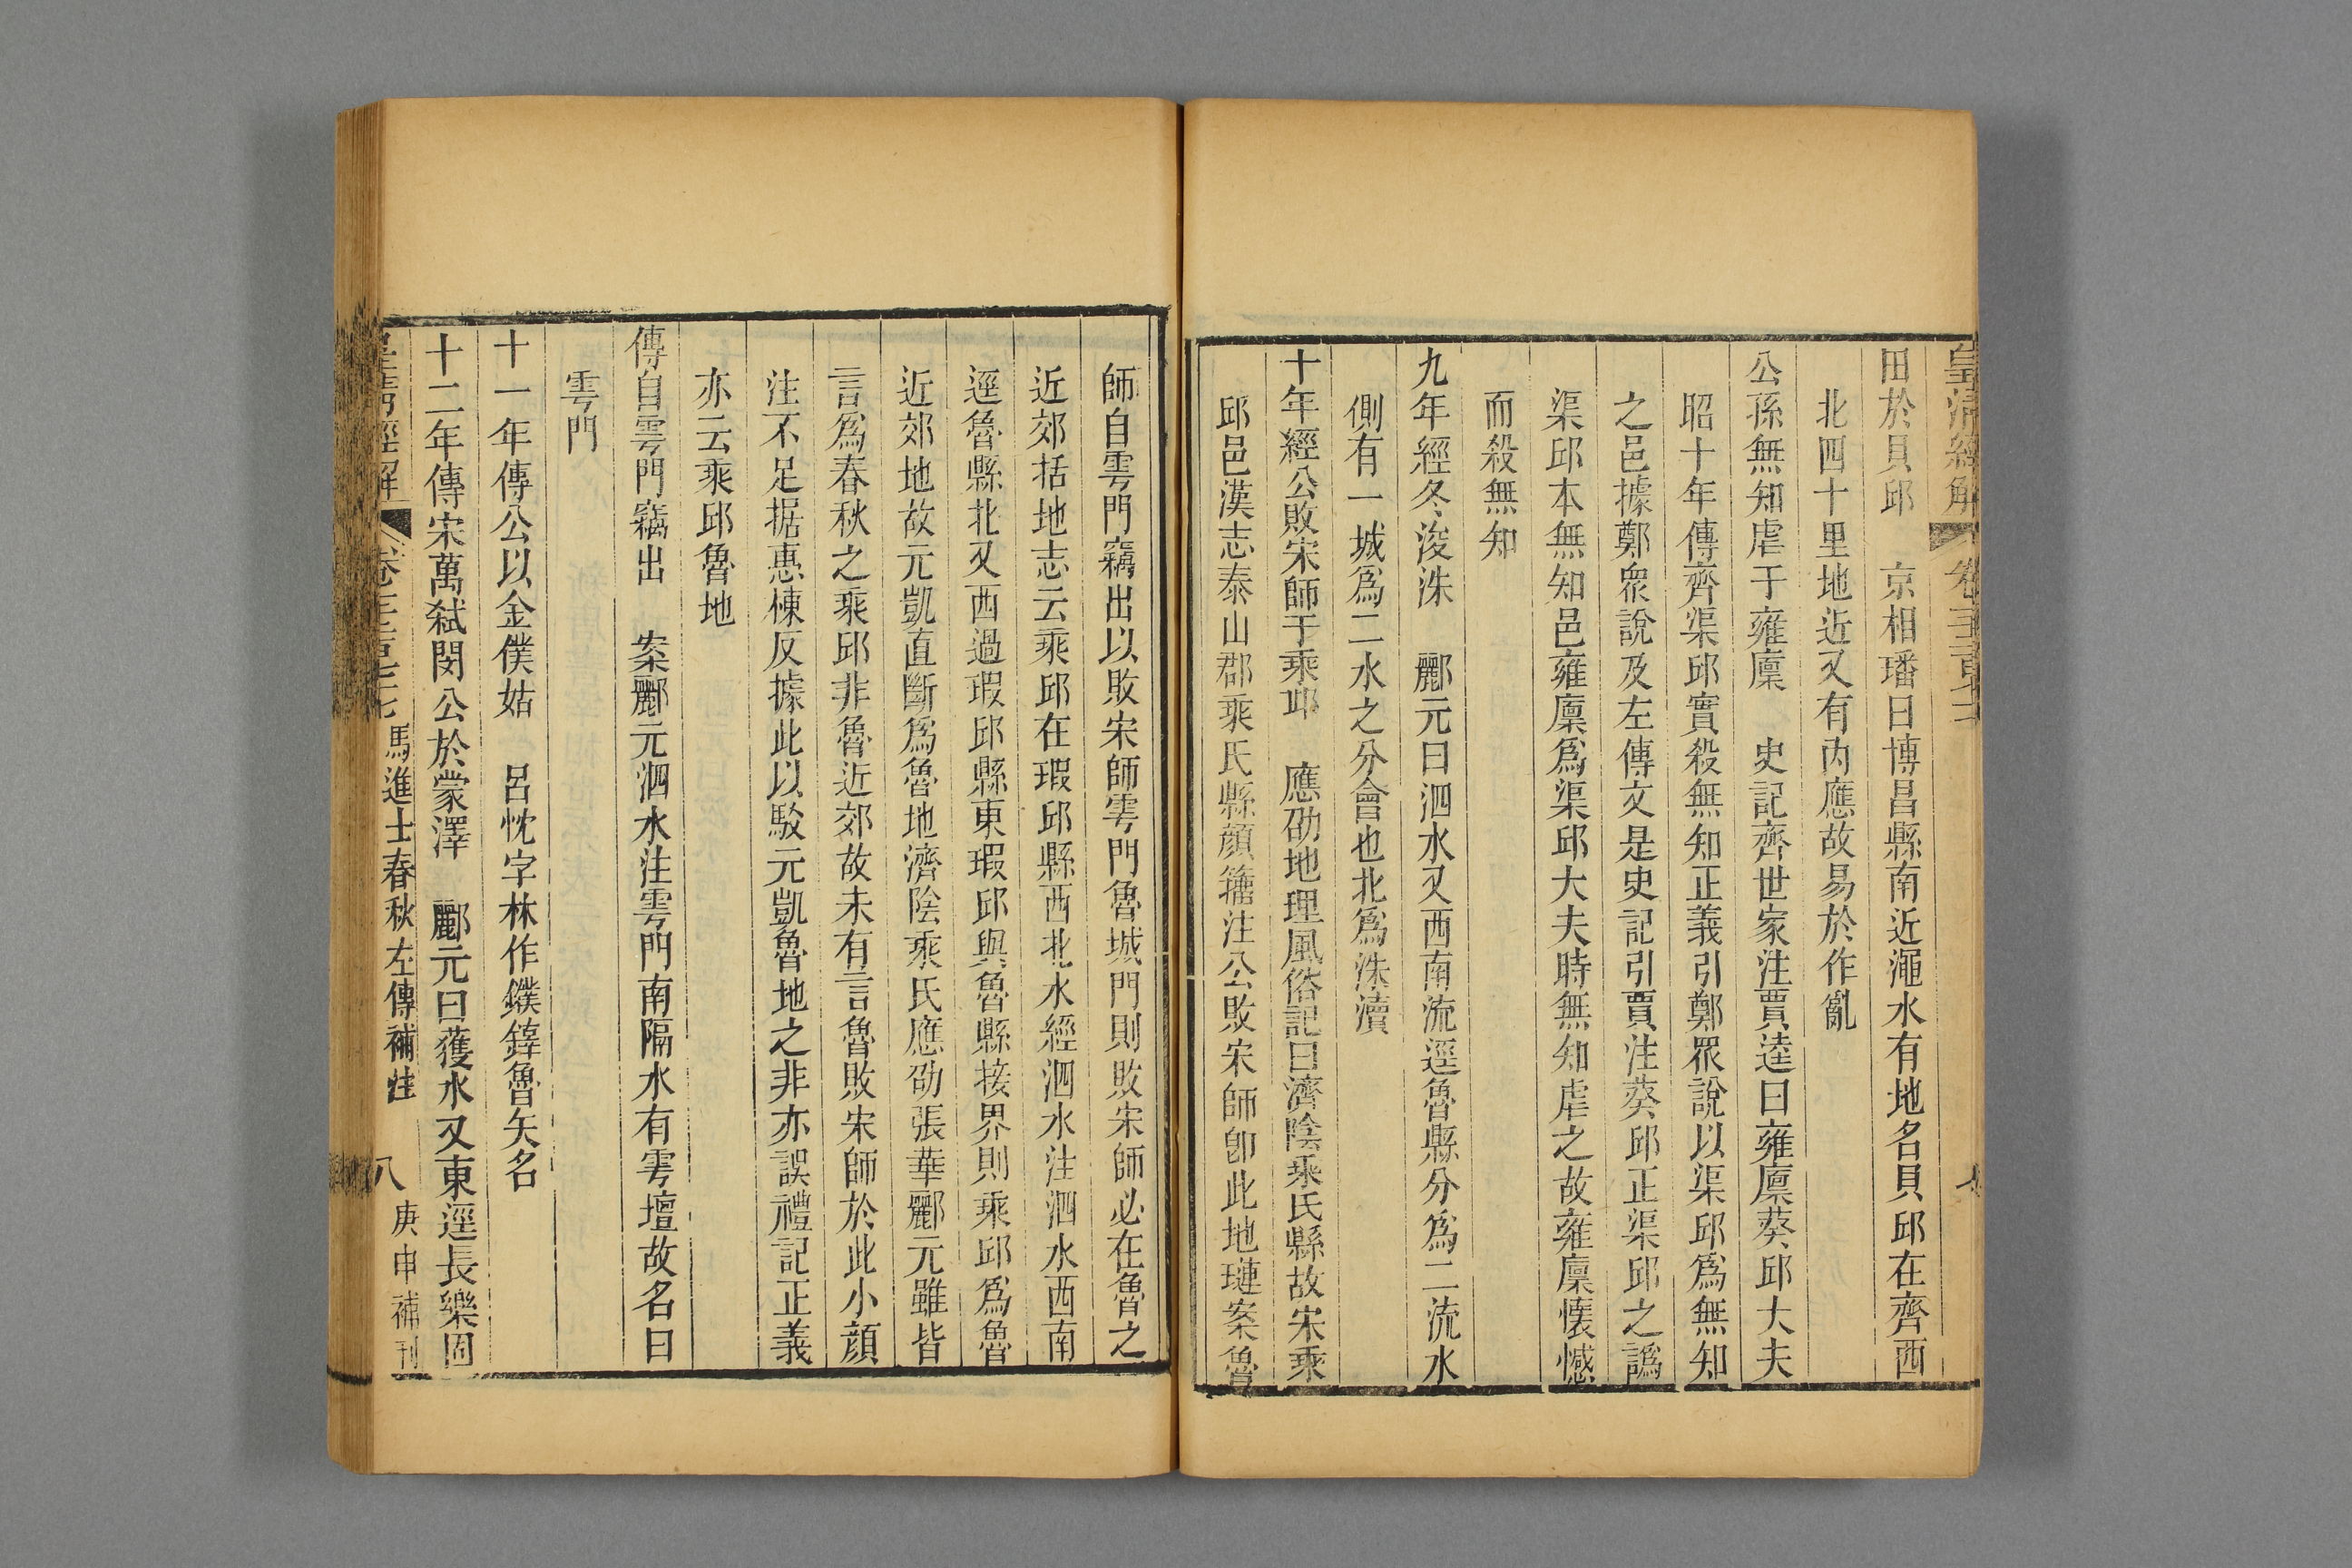 皇清經解 卷三百七十七
田於貝邱　京相璠曰博昌縣南近澠水有地名貝邱在齊西
北四十里地近又有內應故易於作亂
公孫無知虐于雍廩　史記齊世家注賈逵曰雍廩葵邱大夫
昭十年傳齊渠邱實殺無知正義引鄭眾說以渠邱爲無知
之邑據鄭眾說及左傳文是史記引賈注葵邱正渠邱之譌
渠邱本無知邑雍廩爲渠邱大夫時無知虐之故雍廩懷憾
而殺無知
九年經冬浚洙　酈元曰泗水又西南流逕魯縣分爲二流水
側有一城爲二水之分會也北爲洙瀆
十年經公敗宋師于乘邱　應劭地理風俗記曰濟陰乘氏縣故宋乘
邱邑漢志泰山郡乘氏縣顏籀注公敗宋師卽此地璉案魯
師自雩門竊出以敗宋師雩門魯城門則敗宋師必在魯之
近郊括地志云乘邱在瑕邱縣西北水經泗水注泗水西南
逕魯縣北又西過瑕邱縣東瑕邱與魯縣接界則乘邱爲魯
近郊地故元凱直斷爲魯地濟陰乘氏應劭張華酈元雖皆
言爲春秋之乘邱非魯近郊故未有言魯敗宋師於此小顏
注不足据惠棟反據此以駮元凱魯地之非亦誤禮記正義
亦云乘邱魯地
傳自雩門竊出　案酈元泗水注雩門南隔水有雩壇故名曰
雩門
十一年傳公以金僕姑　呂忱字林作鏷鎼魯矢名
十二年傳宋萬弒閔公於蒙澤　酈元曰獲水又東逕長樂固
皇清經解 卷三百七十七 馬進士春秋左傳補注 八 庚申補刊